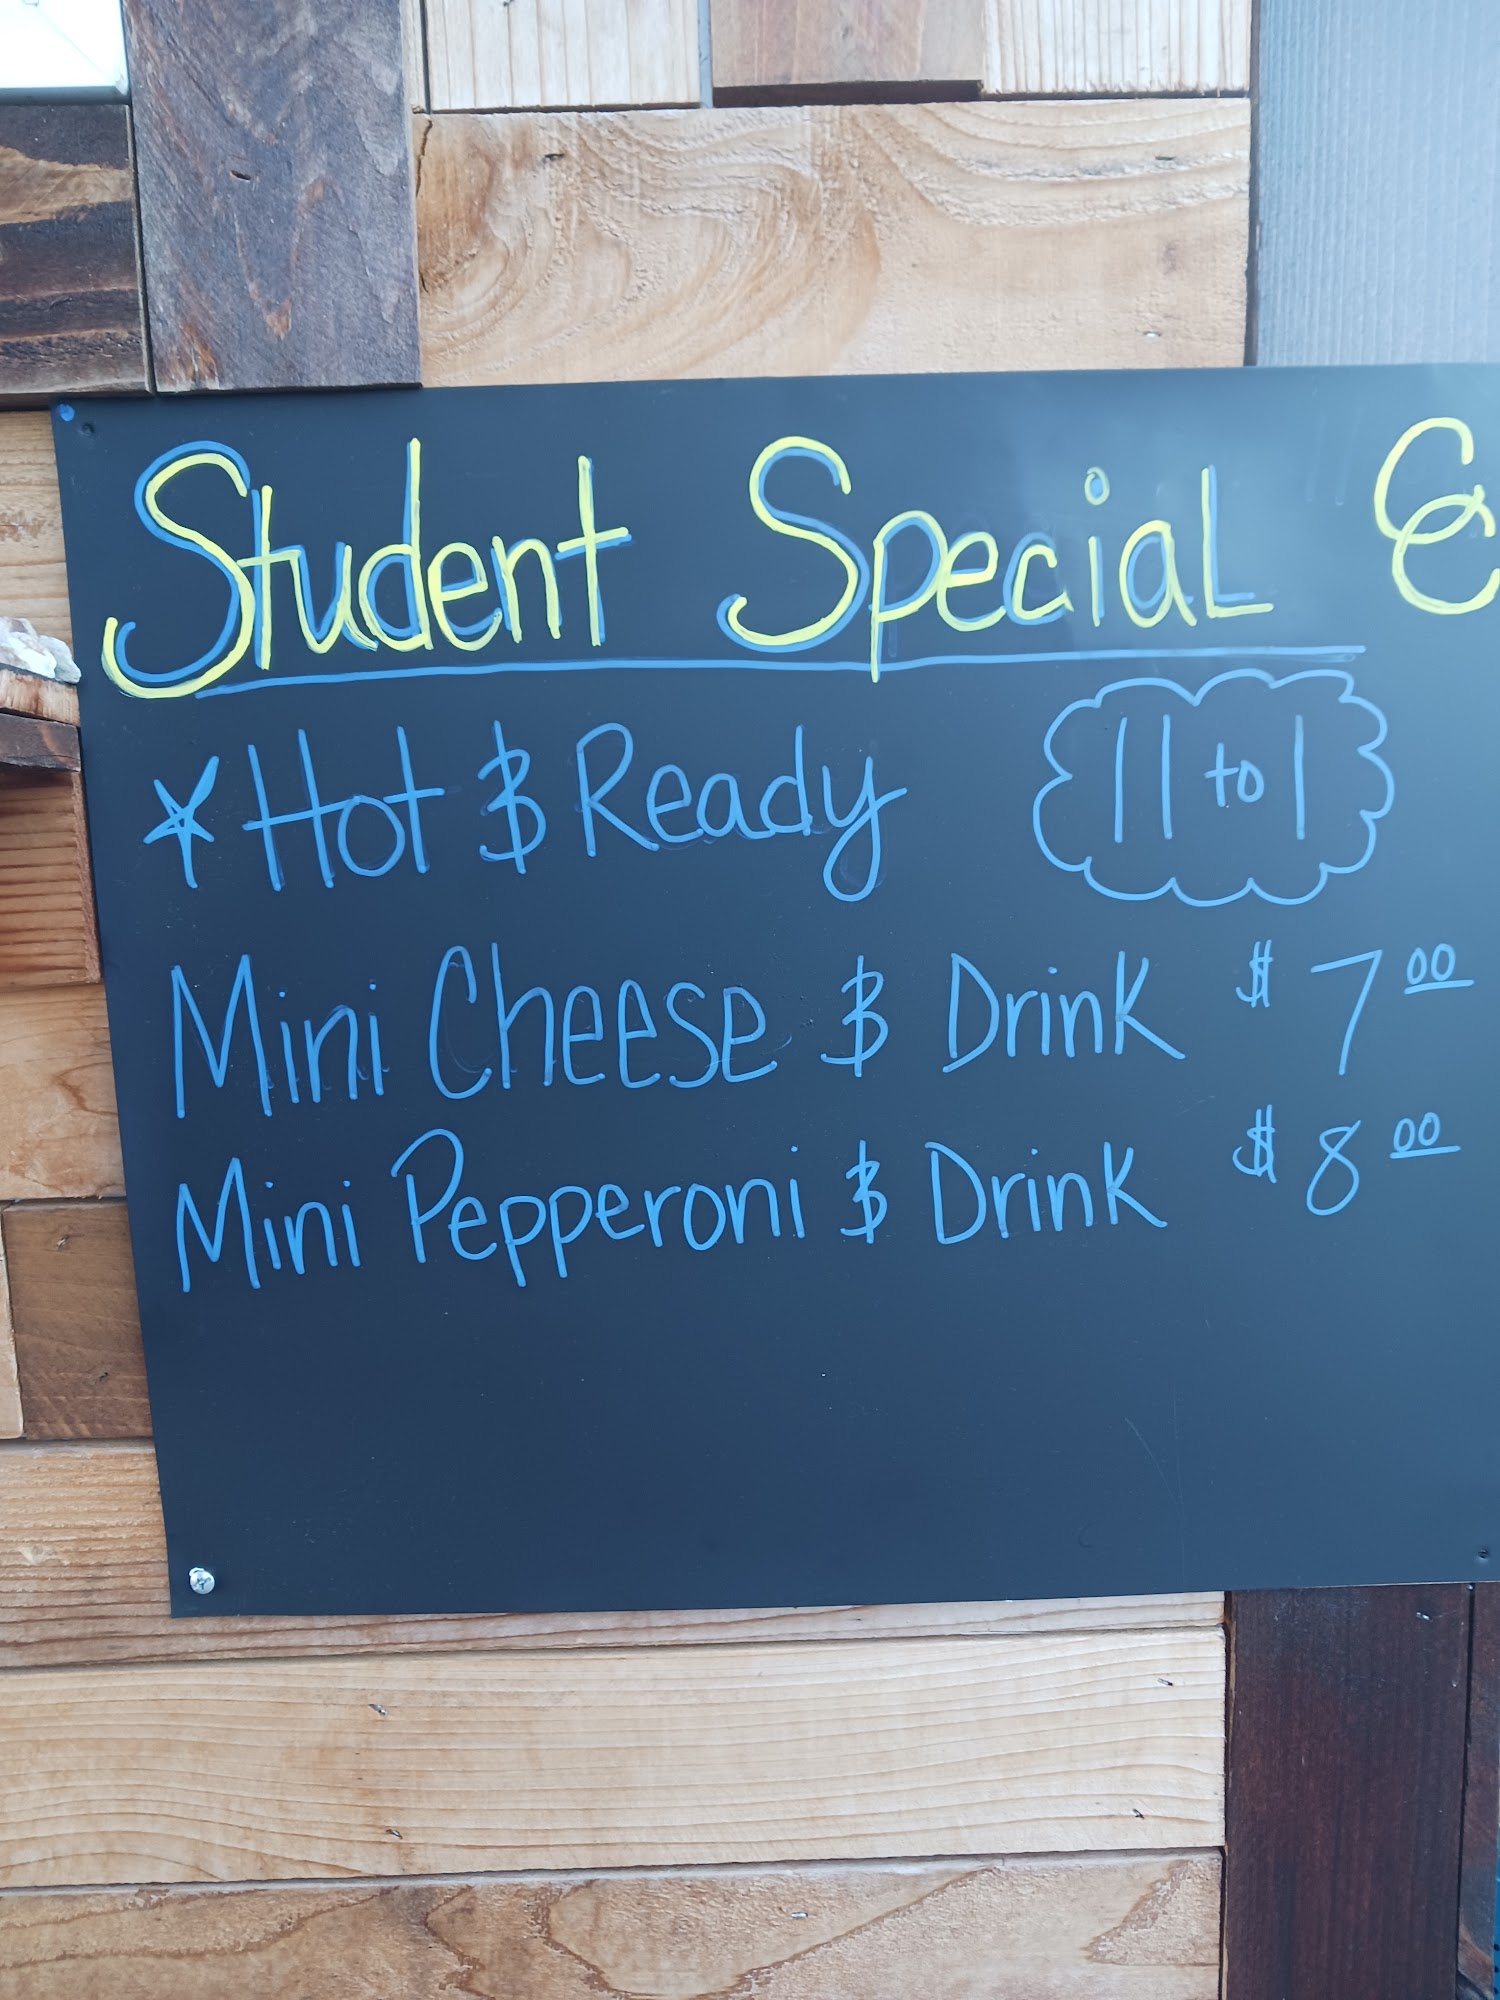 Student Special
*Hot & Ready 11 to 1
Mini Cheese & Drink $7.00
Mini Pepperoni & Drink $8.00